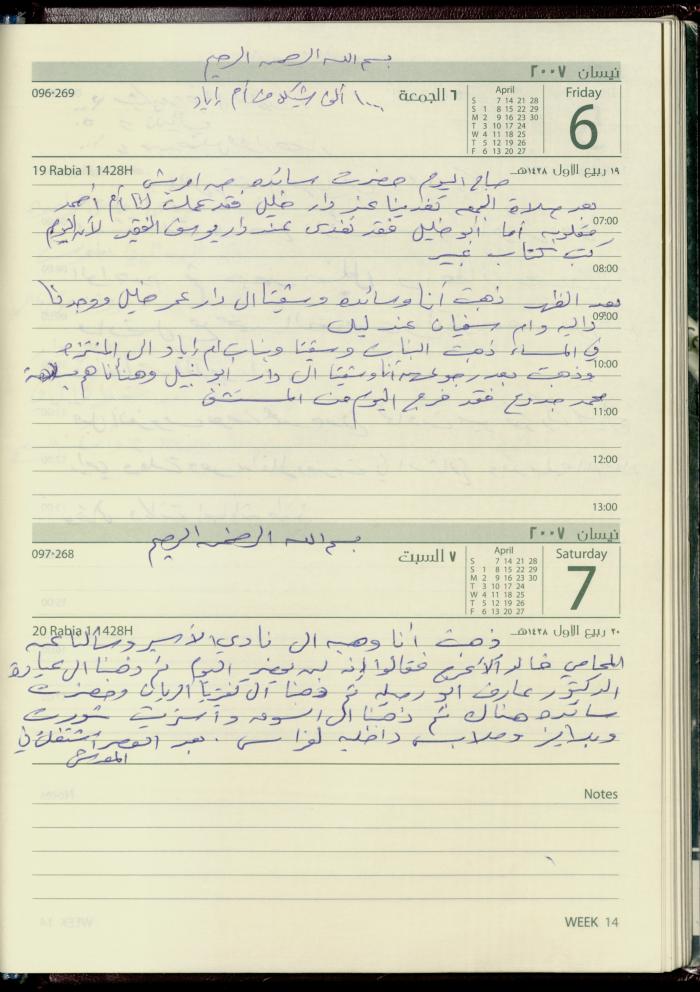 بسم الله الرحمن الرحيم
نيسان ٢٠٠٧
096-269
١٠٠٠ ألف شيكل من أم إياد
٦ الجمعة
April
S 7 14 21 28
S 1 8 15 22 29
M 2 9 16 23 30
T 3 10 17 24
W 4 11 18 25
T 5 12 19 26
F 6 13 20 27
Friday
6
19 Rabia 1 1428H
١٩ ربيع الأول ١٤٢٨هـ
صباح اليوم حضرت سائده من
بعد صلاة الجمعه تغدينا عند دار خليل فقد عملت لنا أم أحمد
07:00
مقلوبه أما أبو خليل فقد تغدى عند دار يوسف الفقير لأن اليوم
كتب كتاب عبير
08:00
بعد الظهر ذهبت أنا وسائده وشيقتا ال دار عمر خليل ووجدنا
09:00
داليه وام سفيان عند ليك
في المساء ذهبت البنات وشيقتا وبنات ام إياد الى المنتزه
10:00
وذهبت بعد رجوعهم أنا وشيقتا ال دار أبو نبيل وهنأناهم بسلامة
محمد جدوع فقد خرج اليوم من المستشفى
11:00
12:00
13:00
نيسان ٢٠٠٧
بسم الله الرحمن الرحيم
097-268
٧ السبت
April
S 7 14 21 28
S 1 8 15 22 29
M 2 9 16 23 30
T 3 10 17 24
W 4 11 18 25
T 5 12 19 26
F 6 13 20 27
Saturday
7
20 Rabia 1 1428H
٢٠ ربيع الأول ١٤٢٨هـ
ذهبت أنا وهبه ال نادي الأسير وسألنا عن
المحامي خالد الأعرج فقالوا إنه لن يحضر اليوم ثم ذهبنا ال عيادة
الدكتور عارف ابو رميله ثم ذهبنا ال كفتريا الريان وحضرت
سائده هناك ثم ذهبنا ال السوق واشتريت شورت
وبلايز وملابس داخليه لفراس . بعد العصر اشتغلت في
المفرش
Notes
WEEK 14